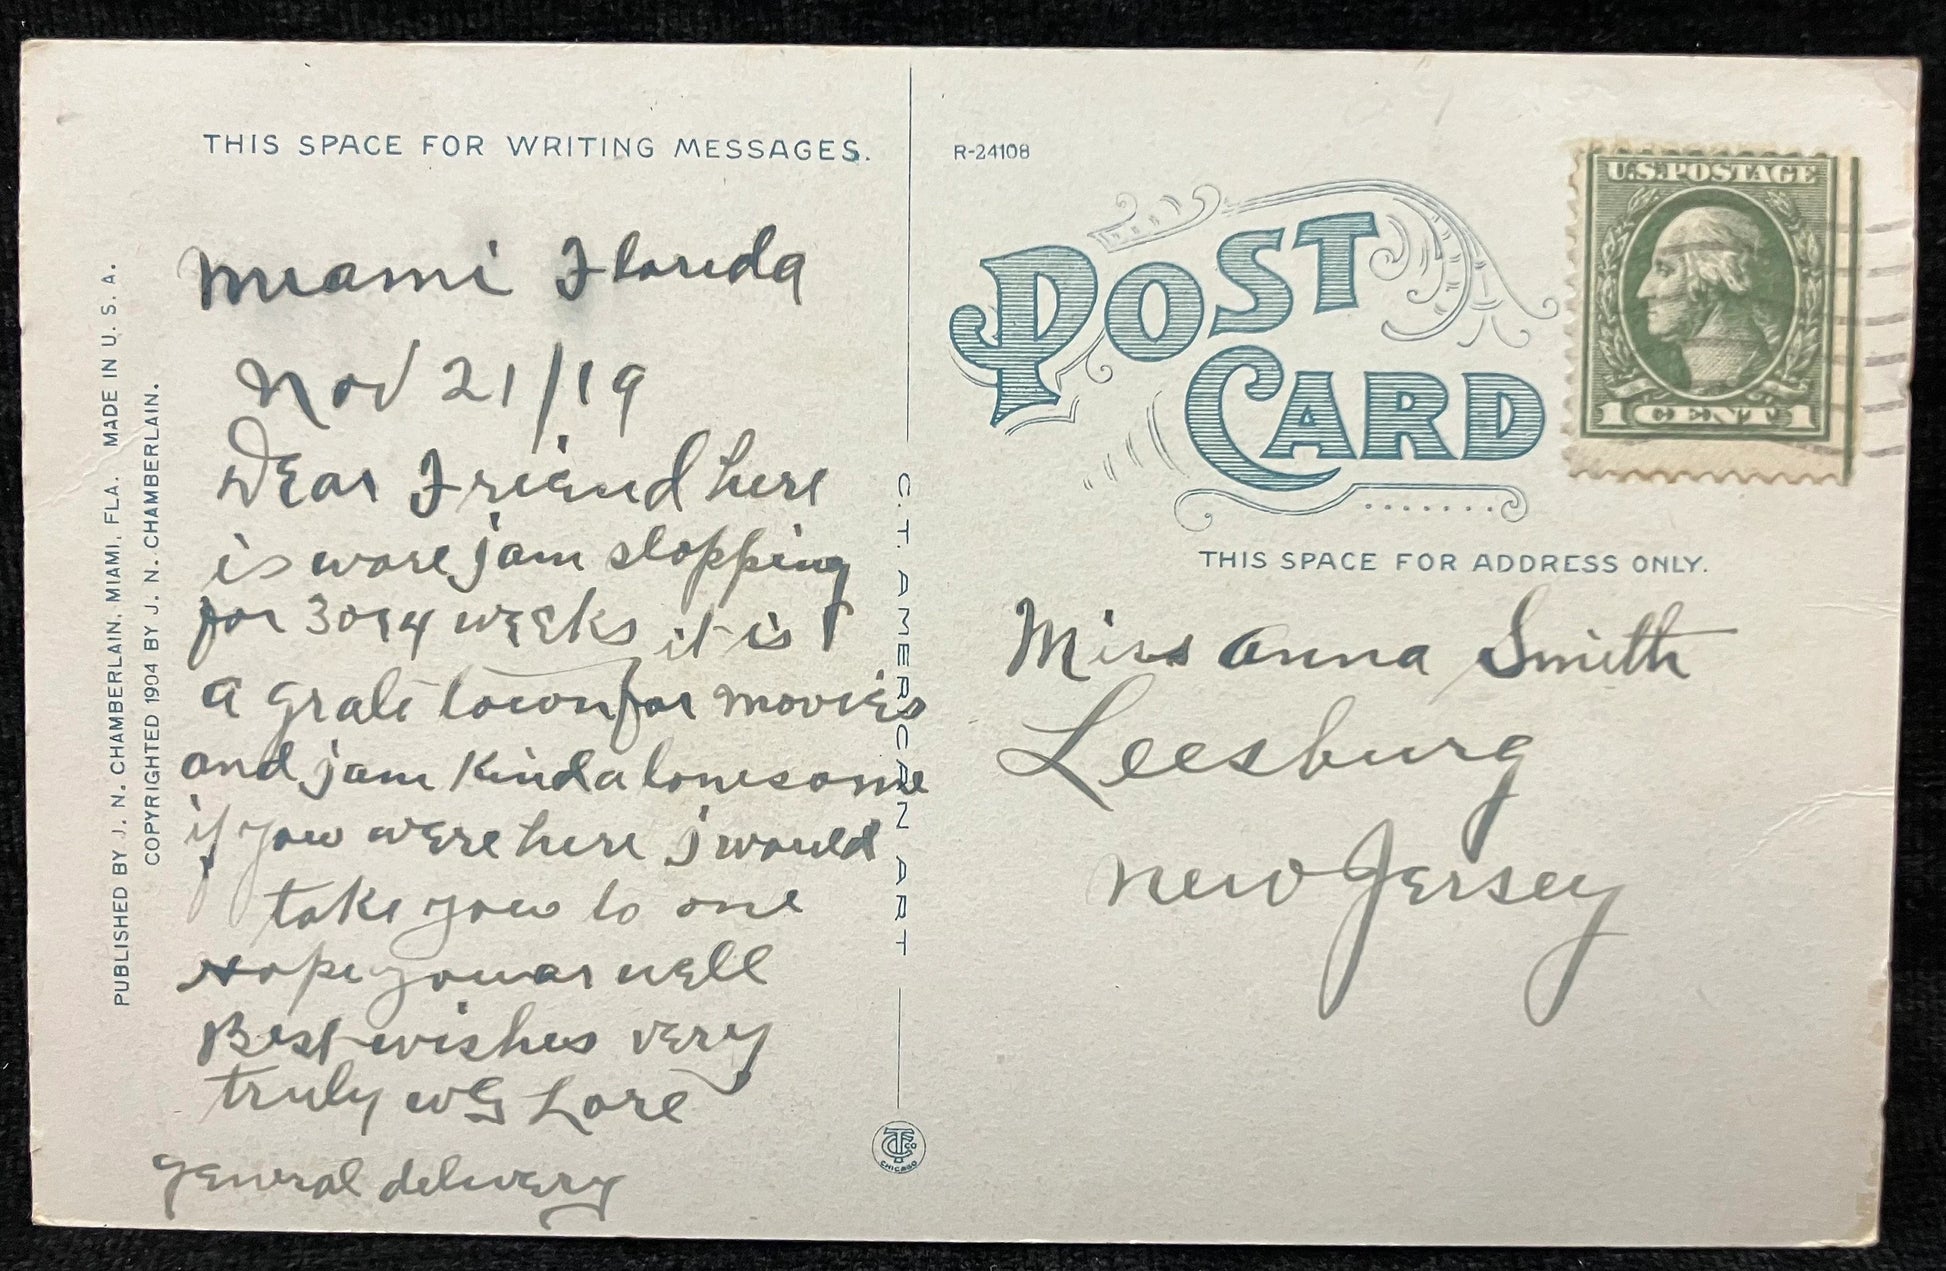 THIS SPACE FOR WRITING MESSAGES.
Miami Florida
Nov 21/19
Dear Friend here
is ware j am stopping
for 3 or 4 weeks it is
a grate town for movies
and j am Kinda lonesome
if you were here j would
take you to one
Hope you ar well
Best wishes very
truly W G Lore
general delivery
PUBLISHED BY J. N. CHAMBERLAIN, MIAMI, FLA. MADE IN U. S. A.
COPYRIGHTED 1904 BY J. N. CHAMBERLAIN.
C. T. AMERICAN ART
CTCo
CHICAGO
R-24108
POST
CARD
U.S. POSTAGE
1 CENT 1
THIS SPACE FOR ADDRESS ONLY.
Miss Anna Smith
Leesburg
New Jersey